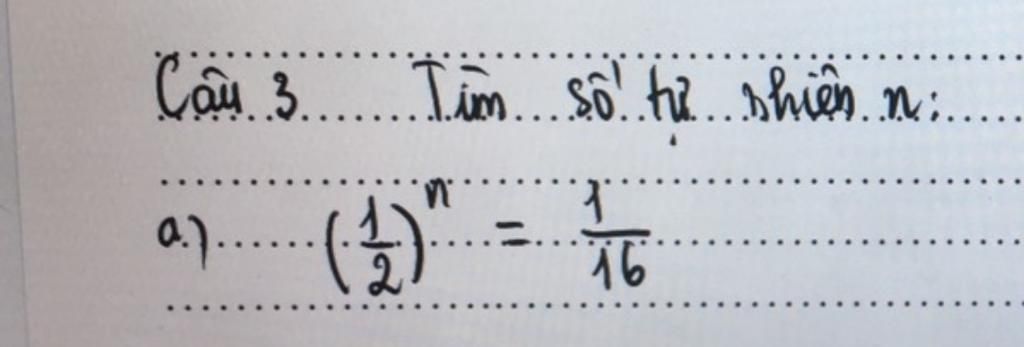 Câu 3 Tìm số tự nhiên n:
a.) (1/2)^n = 1/16